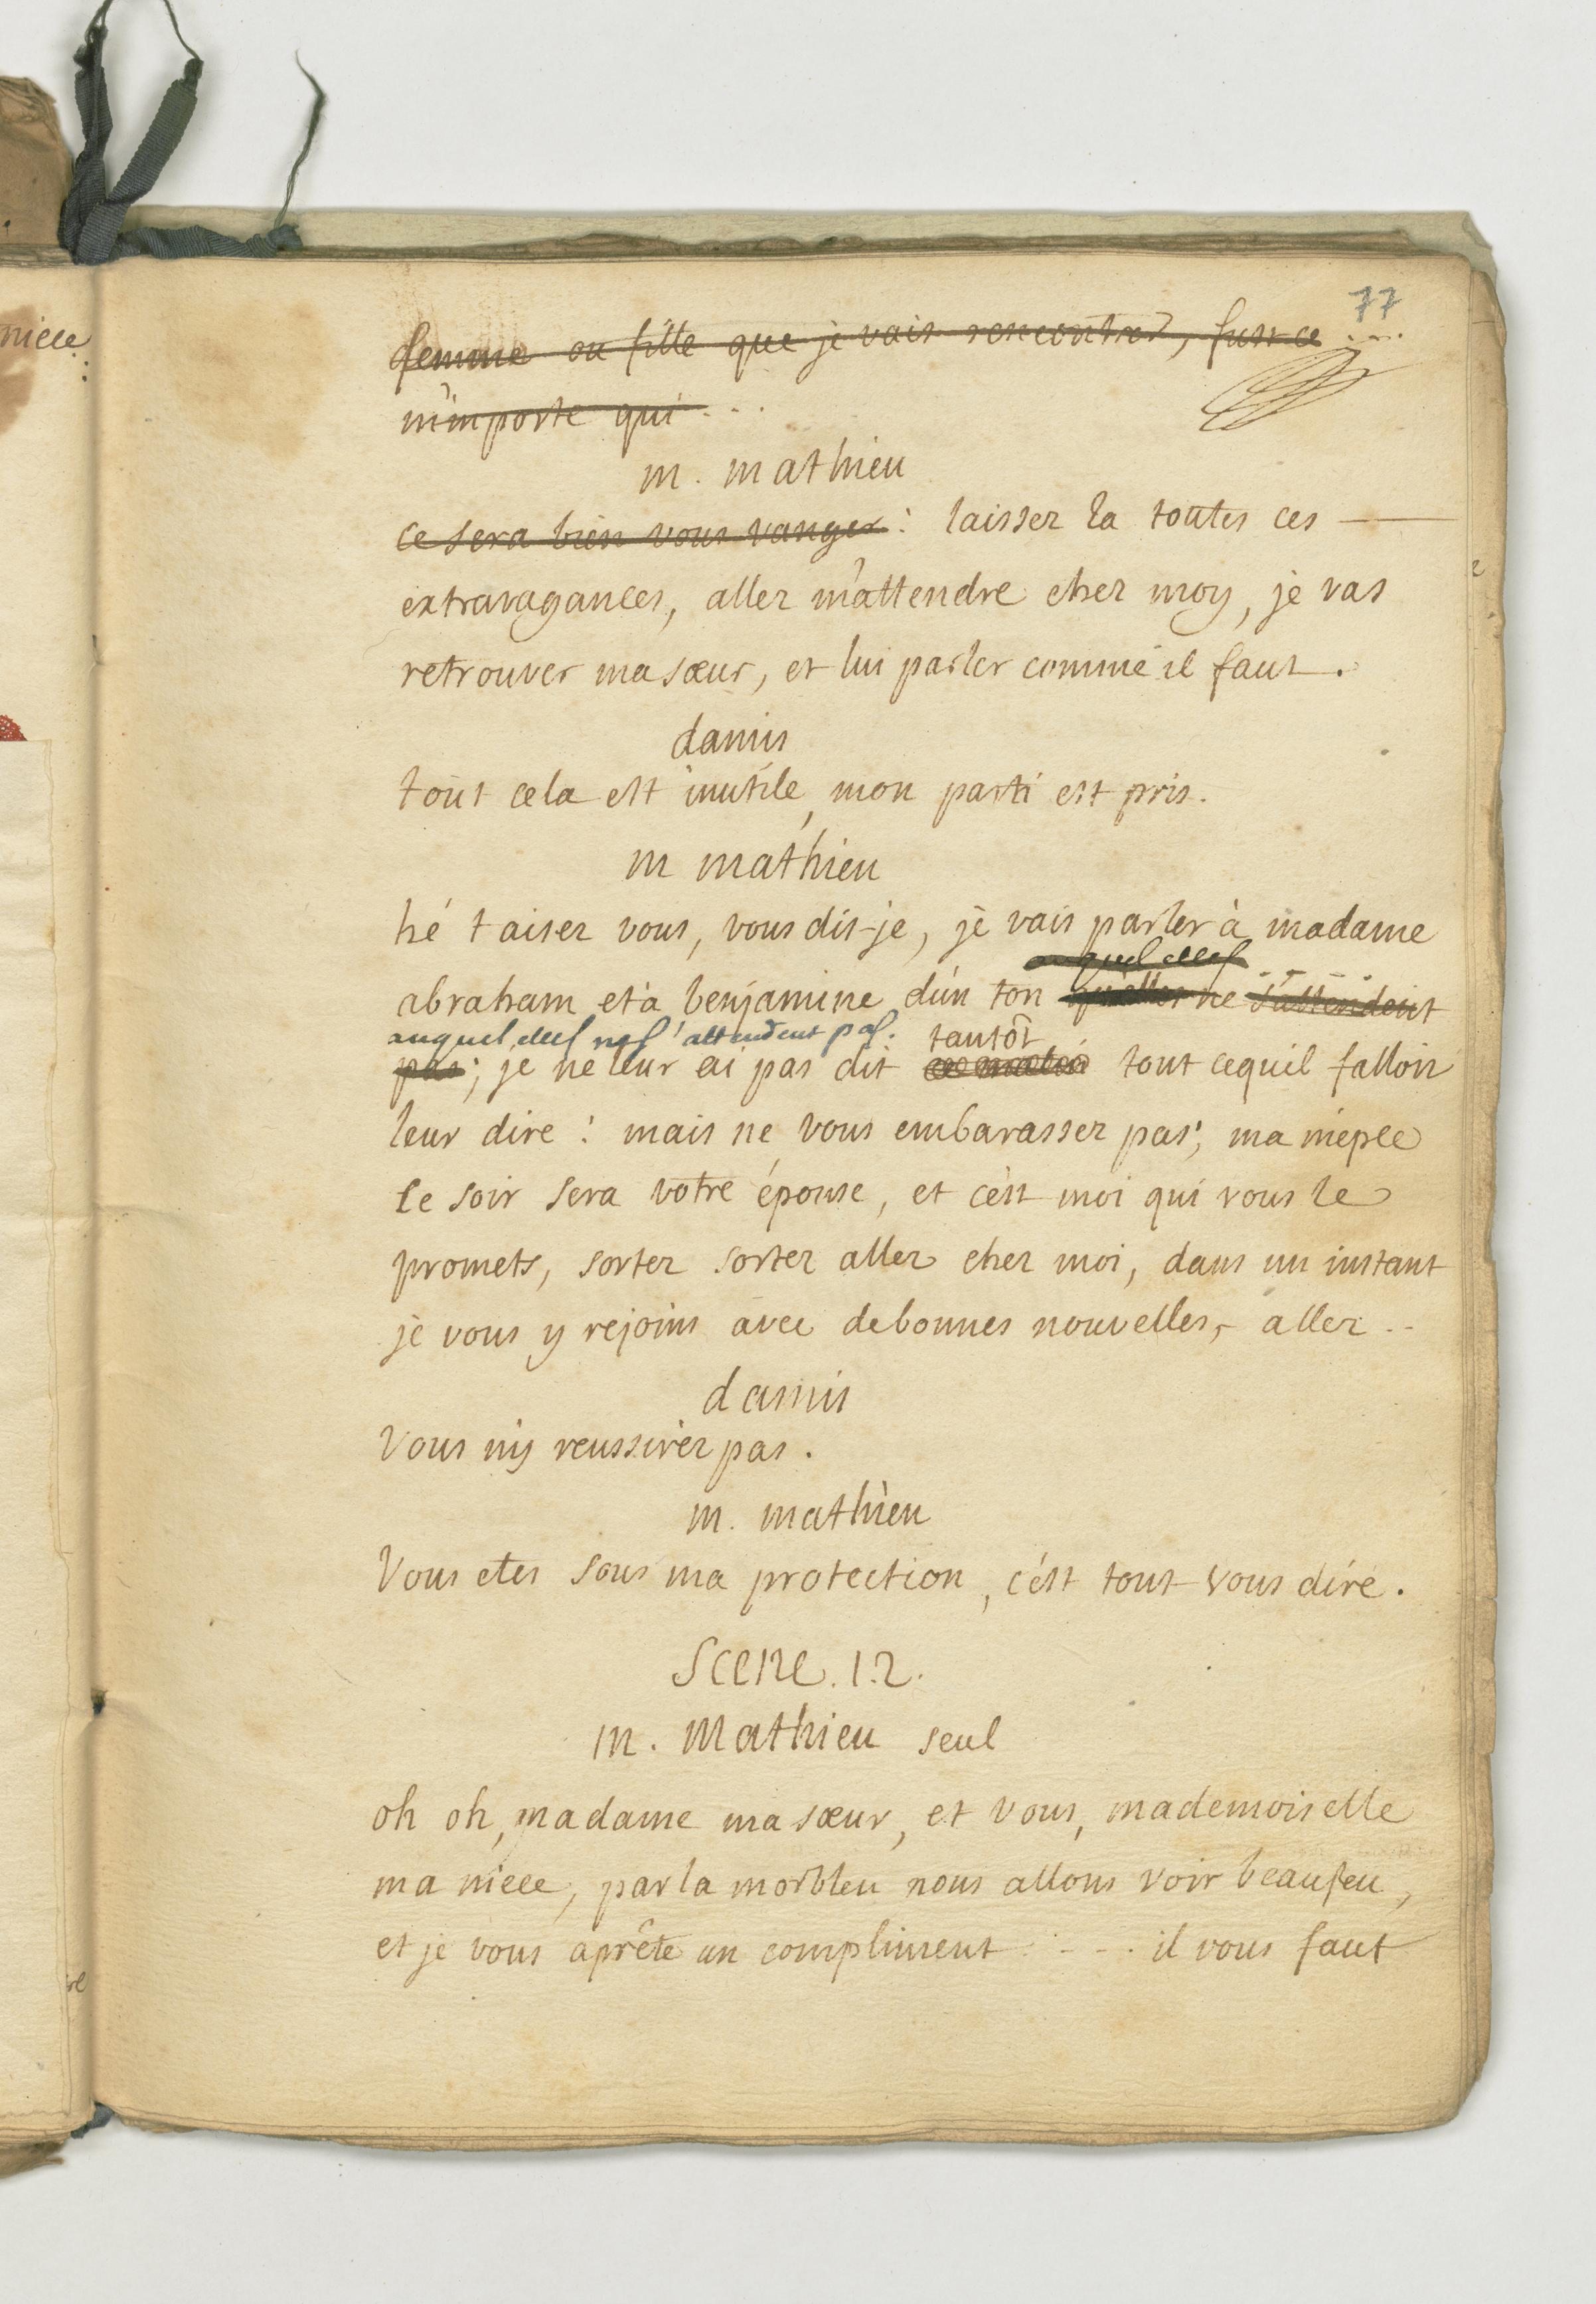 niece
:
re
77
femme ou fille que je vais rencontrer, fust ce ....
n'importe qui ...
m. mathieu
ce sera bien vous vanger : laissez la toutes ces —
extravagances, allez m'attendre chez moy, je vas
retrouver ma sœur, et lui parler comme il faut.
damis
tout cela est inutile, mon parti est pris.
m mathieu
hé taisez vous, vous dis-je, je vais parler à madame
auquel elles
abraham et à benjamine d'un ton qu'elles ne s'attendent
auquel elles ne s'attendent pas. tantôt
pas; je ne leur ai pas dit ce matin tout cequil falloit
leur dire : mais ne vous embarassez pas; ma niepce
ce soir sera votre épouse, et c'est moi qui vous le
promets, sortez sortez allez chez moi, dans un instant
je vous y rejoins avec de bonnes nouvelles, allez ..
damis
Vous n'y reussirez pas.
m. mathieu
Vous etes sous ma protection, c'est tout vous dire.
Scene. 12.
m. Mathieu seul
oh oh, madame ma sœur, et vous, mademoiselle
ma niece, par la morbleu nous allons voir beau jeu,
et je vous aprête un compliment .--. il vous faut